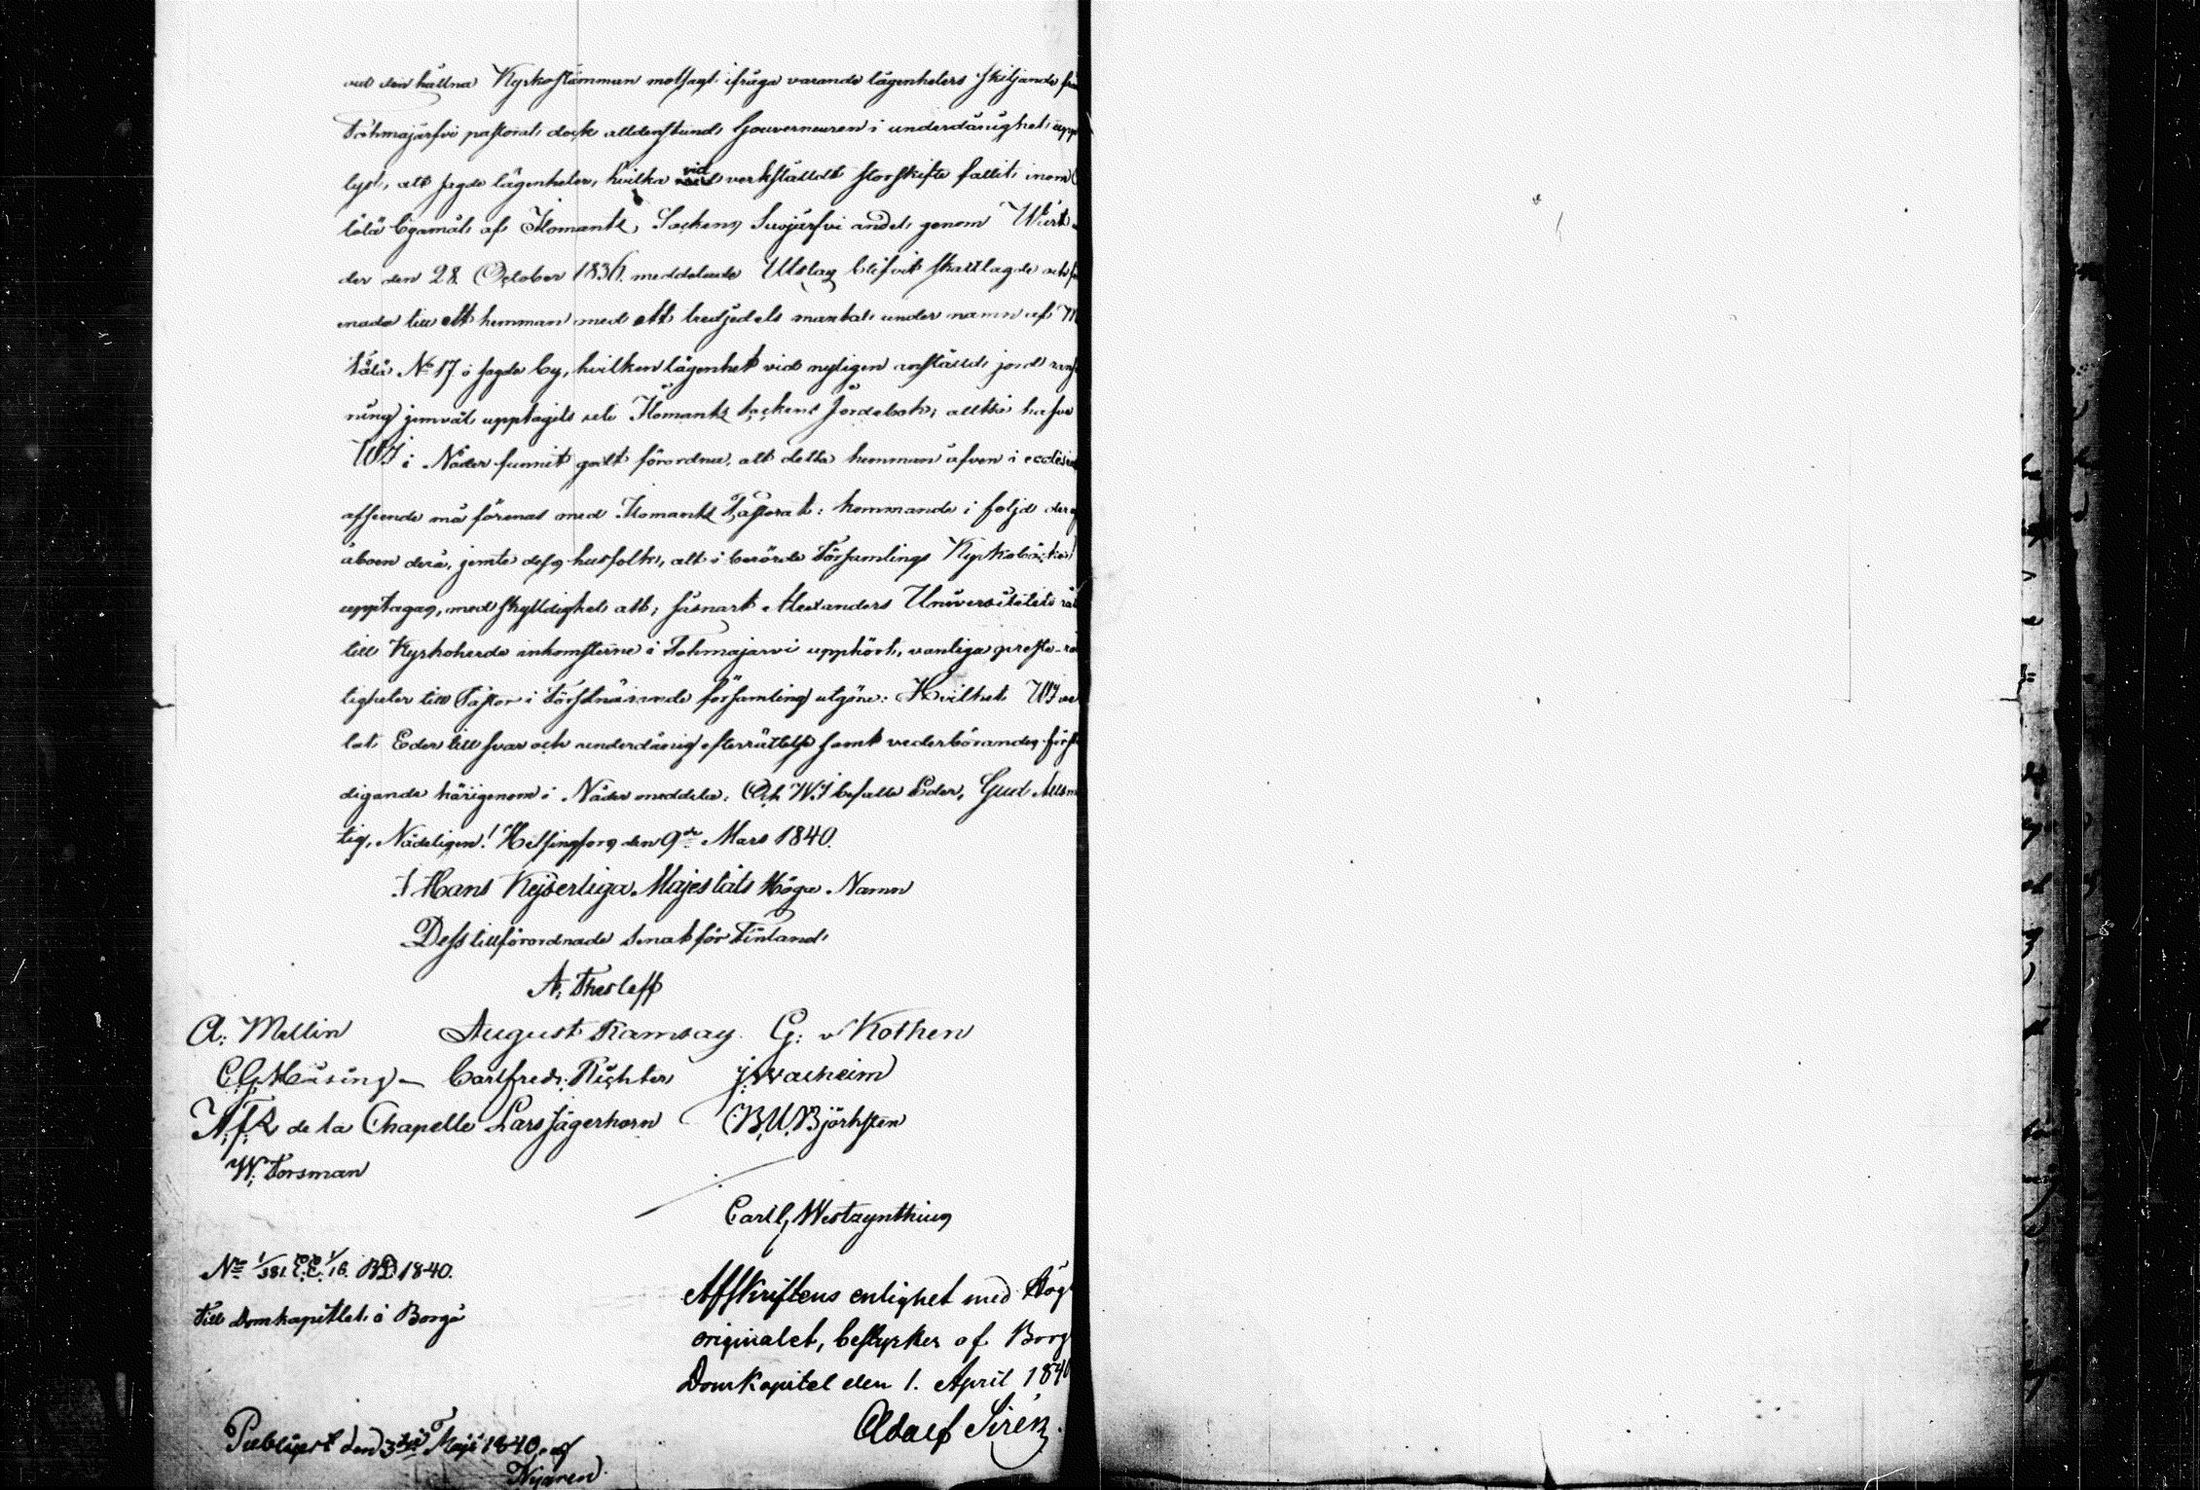 vid den hållna Kyrkostämman motsagt ifråga varande lägenheters skiljande frå
Tohmajärfvi pastorat, dock alldenstund Gouverneuren i underdånighet upp
lyst, att sagde lägenheter, hvilka vid verkställdt storskifte fallit inom
lölä byamål af Ilomants Sockens Suojärfvi andel, genom
der den 28 October 1836 meddelade Utslag blifvit skattlagde och
enade till ett hemman med ett tredjedels mantal under namn af M
tälä No 17 i sagde by, hvilken lägenhet vid nyligen anställd jord ransa
ning jemväl upptagits uti Ilomants Sockens Jordebok; alltså hafve
WI i Nåder funnit godt förordna, att detta hemman äfven i ecclesiast
afseende må förenas med Ilomants Pastorat: kommande i följd deraf
åboen derå, jemte dess husfolk, att i berörde Församlings Kyrkoböcker
upptagas, med skyldighet att, såsnart Alexanders Universitetets rät
till Kyrkoherde inkomsterne i Tohmajärvi upphört, vanliga preste-rät
tigheter till Pastor i förstnämnde församling utgöra: Hvilket WI ve
lat Eder till svar och underdånig efterrättelse samt vederbörandes förstän
digande härigenom i Nåder meddela. Och WI befalle Eder, Gud Allsm
tig, Nådeligen! Helsingfors den 9de Mars 1840.
I Hans Kejserliga Majestäts Höga Namn
Dess tillförordnade Senat för Finland,
A. Thesleff
A. Mellin August Ramsay. G. v Kothen
C. G. Mannsing Carl Fredr. Richter J. Walheim
A. F. R. de la Chapelle Lars Jägerhorn B. U. Björksten
W. Forsman
Carl G. Westzynthius
No 1/381. E.E. 1/16. BD 1840.
Till Domkapitlet i Borgå
Afskriftens enlighet med Hög
originalet, bestyrker af Borg
Domkapitel den 1. April 1840
Adolf Sirén.
Publicert den 3dje Maji 1840, af
Nygren